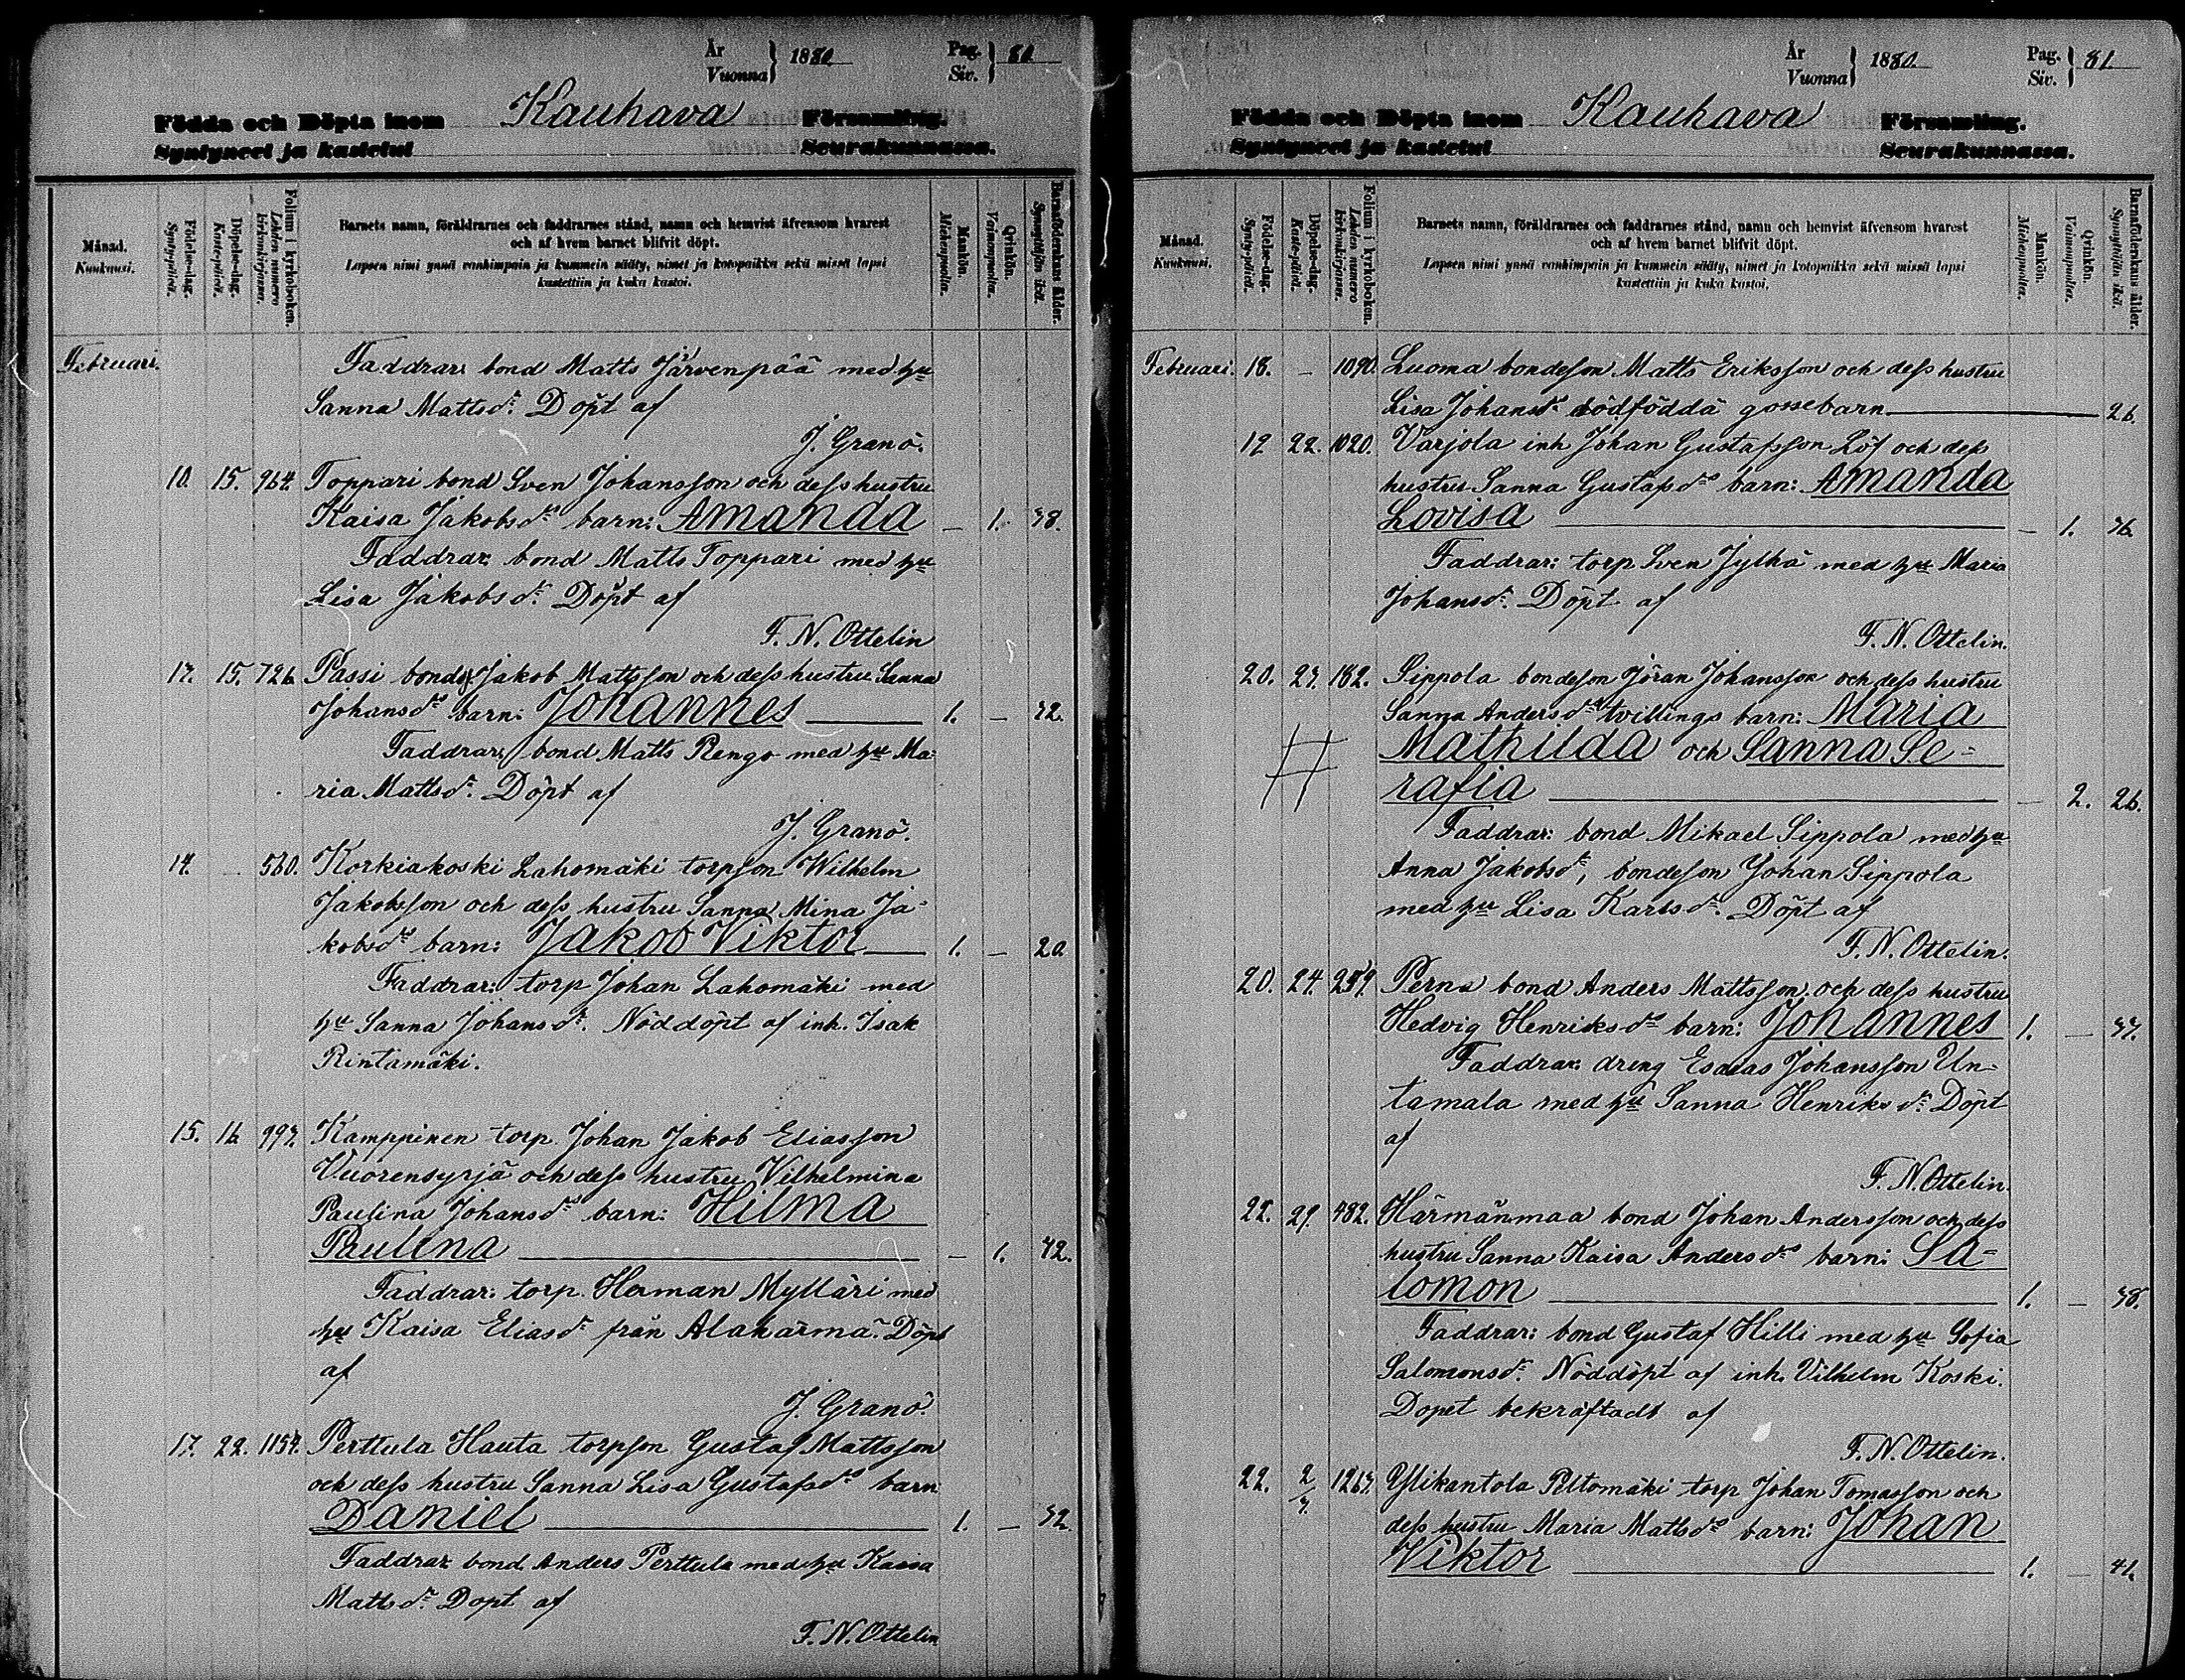 År
Vuonna } 1880 Pag.
Siv. } 80
Födda och Döpta inom Kauhava Församling.
Syntyneet ja kastetut Seurakunnassa.
Månad.
Kuukausi.
Födelse-dag.
Synty-päivä.
Döpelse-dag.
Kaste-päivä.
Folium i kyrkoboken.
Lehden numero
kirkonkirjassa.
Barnets namn, föräldrarnes och faddrarnes stånd, namn och hemvist äfvensom hvarest
och af hvem barnet blifvit döpt.
Lapsen nimi ynnä vanhimpain ja kummein sääty, nimet ja kotopaikka sekä missä lapsi
kastettiin ja kuka kastoi.
Mankön.
Miehenpuolta.
Qvinkön.
Vaimonpuolta.
Barnaföderskans ålder.
Synnyttäjän ikä.
Februari. Faddrar: bond Matts Järvenpää med hu
Sanna Mattsdr. Döpt af
J. Granö.
10. 15. 964. Toppari bond Sven Johansson och dess hustru
Kaisa Jakobsdrs barn: Amanda – 1. 38.
Faddrar: bond Matts Toppari med hu
Lisa Jakobsdr. Döpt af
F. N. Ottelin
13. 15. 726. Passi bonds. Jakob Mattsson och dess hustru Sanna
Johansdrs barn: Johannes 1. – 32.
Faddrar: bond Matts Rengo med hu Ma-
ria Mattsdr. Döpt af
J. Granö.
14. – 560. Korkiakoski Lahomäki torpson Wilhelm
Jakobsson och dess hustru Sanna Mina Ja-
kobsdrs barn: Jakob Viktor 1. – 20
Faddrar: torp Johan Lahomäki med
hu Sanna Johansdr. Nöddöpt af inh. Isak
Rintamäki.
15. 16. 993. Kamppinen torp. Johan Jakob Eliasson
Vuorensyrjä och dess hustru Vilhelmina
Paulina Johansdrs barn: Hilma
Paulina – 1. 42.
Faddrar: torp. Herman Mylläri med
hu Kaisa Eliasdr från Alahärmä. Döpt
af
J. Granö.
17. 22. 1154. Perttula Hauta torpson Gustaf Mattsson
och dess hustru Sanna Lisa Gustafsdrs barn
Daniel 1. – 32.
Faddrar: bond Anders Perttula med hu Kaisa
Mattsdr. Döpt af
F. N. Ottelin
År
Vuonna } 1880. Pag.
Siv. } 81.
Födda och Döpta inom Kauhava Församling.
Syntyneet ja kastetut Seurakunnassa.
Månad.
Kuukausi.
Födelse-dag.
Synty-päivä.
Döpelse-dag.
Kaste-päivä.
Folium i kyrkoboken.
Lehden numero
kirkonkirjassa.
Barnets namn, föräldrarnes och faddrarnes stånd, namn och hemvist äfvensom hvarest
och af hvem barnet blifvit döpt.
Lapsen nimi ynnä vanhimpain ja kummein sääty, nimet ja kotopaikka sekä missä lapsi
kastettiin ja kuka kastoi.
Mankön.
Miehenpuolta.
Qvinkön.
Vaimonpuolta.
Barnaföderskans ålder.
Synnyttäjän ikä.
Februari. 18. – 1090. Luoma bondeson Matts Eriksson och dess hustru
Lisa Johansdrs dödfödda gossebarn 26.
19 22. 1020. Varjola inh Johan Gustafsson Löf och dess
hustru Sanna Gustafsdrs barn: Amanda
Lovisa – 1. 36.
Faddrar: torp Sven Jylhä med hu Maria
Johansdr. Döpt af
F. N. Ottelin.
20. 23. 182. Sippola bondeson Jöran Johansson och dess hustru
Sanna Andersdrs tvillings barn: Maria
Mathilda och Sanna Se-
rafia – 2. 26.
Faddrar: bond Mikael Sippola med hu
Anna Jakobsdr, bondeson Johan Sippola
med hu Lisa Karlsdr. Döpt af
F. N. Ottelin.
20. 24. 259. Perna bond Anders Mattsson och dess hustru
Hedvig Henriksdrs barn: Johannes 1. – 37.
Faddrar: dreng Esaias Johansson Un-
tamala med hu Sanna Henriksdr. Döpt
af
F. N. Ottelin.
22. 29. 482. Härmänmaa bond Johan Andersson och dess
hustru Sanna Kaisa Andersdrs barn: Sa-
lomon 1. – 38.
Faddrar: bond Gustaf Hilli med hu Sofia
Salomonsdr. Nöddöpt af inh. Vilhelm Koski.
Dopet bekräftadt af
F. N. Ottelin.
22. 2/3. 1263. Ylikantola Peltomäki torp Johan Tomasson och
dess hustru Maria Mattsdrs barn: Johan
Viktor 1. – 41.